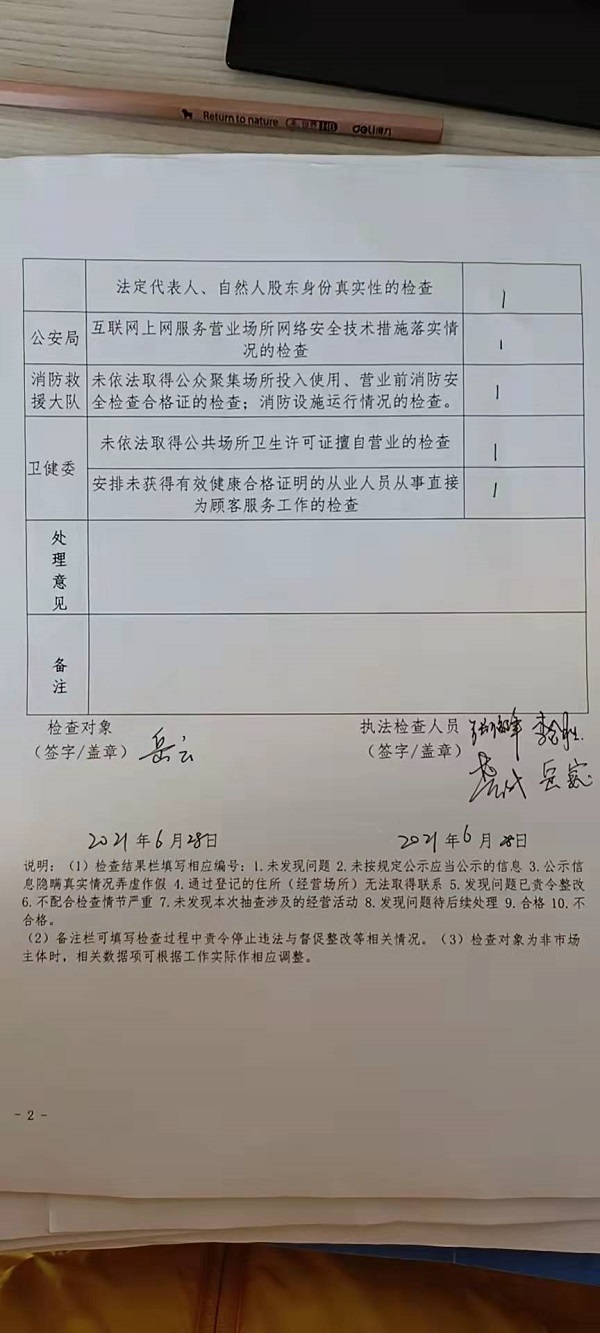 Return to nature
HB
deli得力
法定代表人、自然人股东身份真实性的检查
1
公安局
互联网上网服务营业场所网络安全技术措施落实情
况的检查
1
消防救
援大队
未依法取得公众聚集场所投入使用、营业前消防安
全检查合格证的检查；消防设施运行情况的检查。
1
卫健委
未依法取得公共场所卫生许可证擅自营业的检查
1
安排未获得有效健康合格证明的从业人员从事直接
为顾客服务工作的检查
1
处
理
意
见
备
注
检查对象
（签字/盖章）
岳云
执法检查人员
（签字/盖章）
2021年6月28日
2021年6月28日
说明：（1）检查结果栏填写相应编号：1.未发现问题 2.未按规定公示应当公示的信息 3.公示信
息隐瞒真实情况弄虚作假 4.通过登记的住所（经营场所）无法取得联系 5.发现问题已责令整改
6.不配合检查情节严重 7.未发现本次抽查涉及的经营活动 8.发现问题待后续处理 9.合格 10.不
合格。
（2）备注栏可填写检查过程中责令停止违法与督促整改等相关情况。（3）检查对象为非市场
主体时，相关数据项可根据工作实际作相应调整。
- 2 -